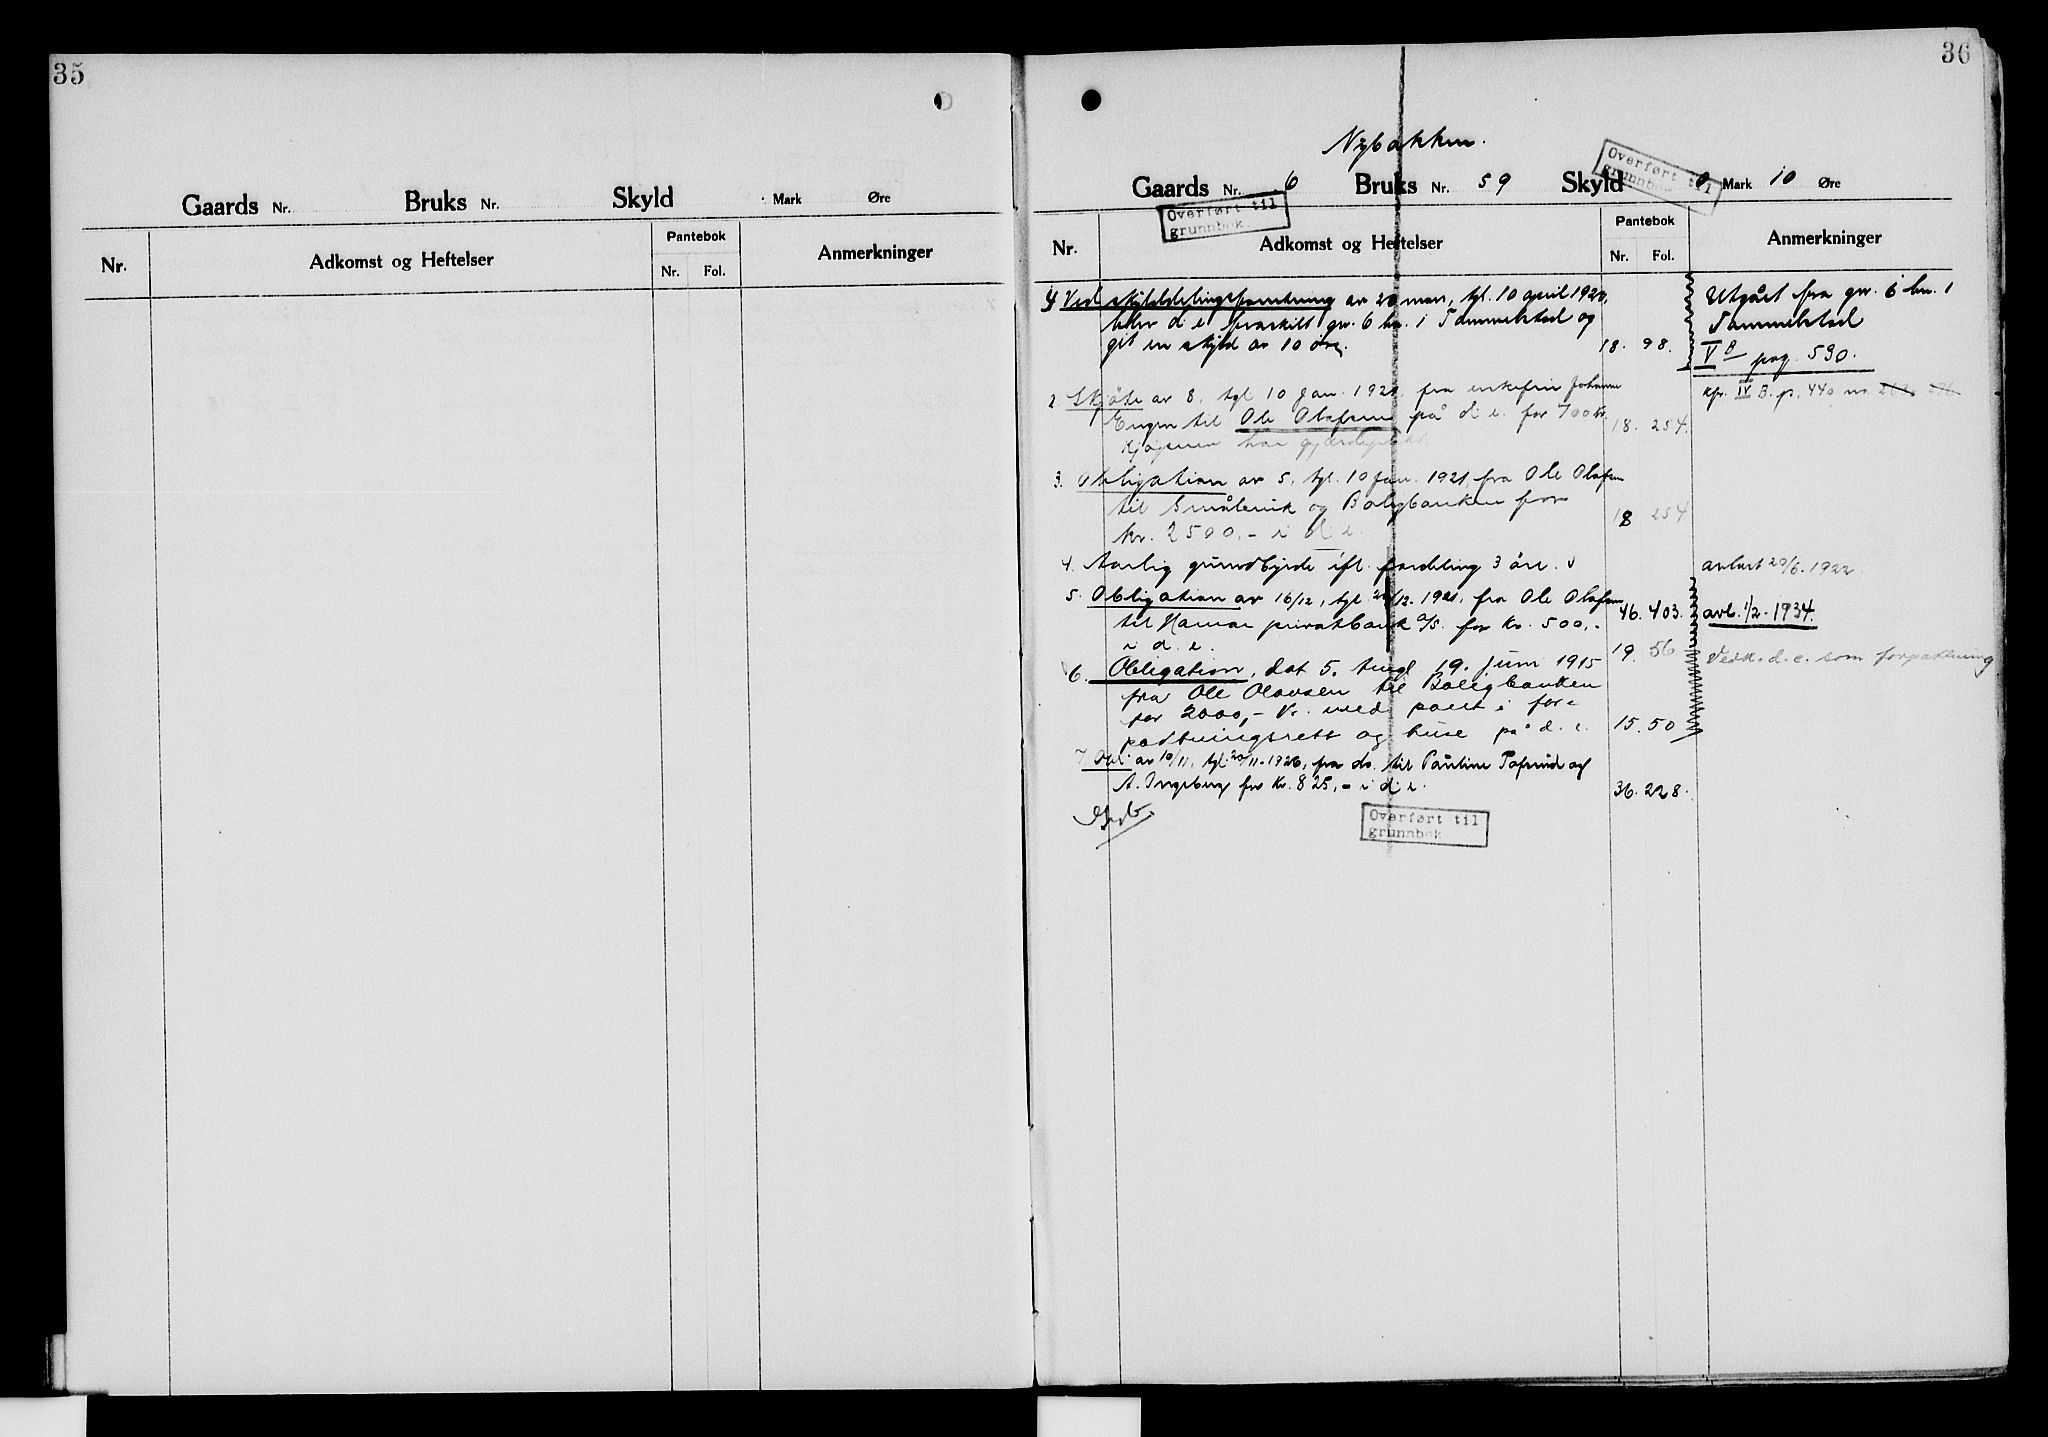 35
Gaards Nr. Bruks Nr. Skyld Mark Øre
Nr. Adkomst og Heftelser Pantebok Anmerkninger
Nr. Fol.
36
Nybakken.
Overført til
grunnbok
Gaards Nr. 6 Bruks Nr. 59 Skyld 0 Mark 10 Øre
Overført til
grunnbok.
Nr. Adkomst og Heftelser Pantebok Anmerkninger
Nr. Fol.
1 Ved skylddelingsforretning av 20 mars, tgl. 10 april 1920,
blev d. e. fraskilt gn. 6 bn. 1 Tommelstad og
git en skyld av 10 øre. 18. 98.
Utgået fra gn. 6 bn. 1
Tommelstad
V B pag. 590.
kfr. IV B. p. 440
2. Skjöte av 8, tgl 10 Jan. 1921, fra enkefru Johanne
Engen til Ole Olafsen på d. e. for 700 kr. 18. 254.
Kjöperen har gjerdeplikt
3. Obligation av 5, tgl. 10 Jan. 1921, fra Ole Olafsen
til Småbruk og Boligbanken for
kr. 2500,- i d. e. 18 254
4. Aarlig grundbyrde ifl. fordeling 3 öre. avløst 20/6. 1922.
5. Obligation av 16/12, tgl /12. 1921, fra Ole Olafsen 46. 403. avl. 1/2 - 1934.
til Hamar privatbank A/S. for Kr. 500,-
i d. e. 19. 56
6. Obligation, dat 5. tingl 19. juni 1915 Vedk. d. e. som forpaktning
fra Ole Olavsen til Boligbanken
for 2000,- kr. med pant i for-
paktningsrett og huse på d. e. 15. 50
7. Obl. av 10/11, tgl. 20/11-1926, fra do. til Pauline og
A. Ingeberg for Kr. 825,- i d. e. 36. 228.
Overført til
grunnbok